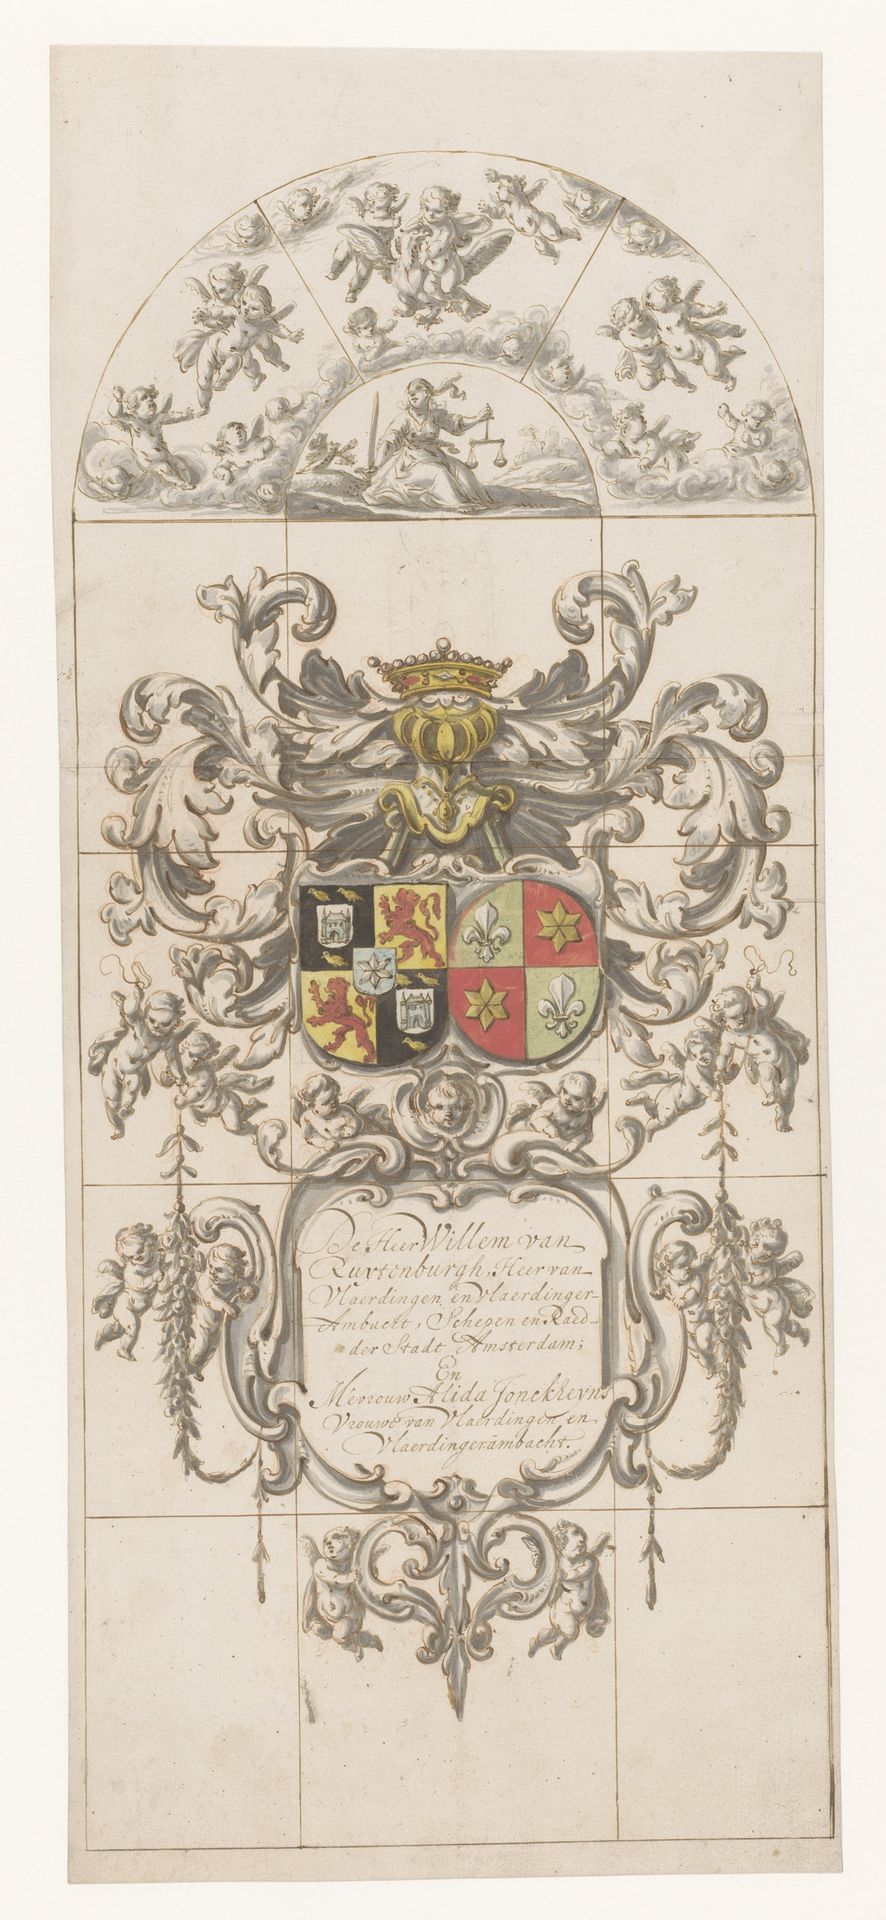 De Heer Willem van
Ruytenburgh, Heer van
Vlaerdingen en vlaerdinger-
Ambacht, Schepen en Raed
der Stadt Amsterdam;
En
Mevrouw Alida Jonckheyns
Vrouwe van Vlaerdingen en
Vlaerdingerambacht.